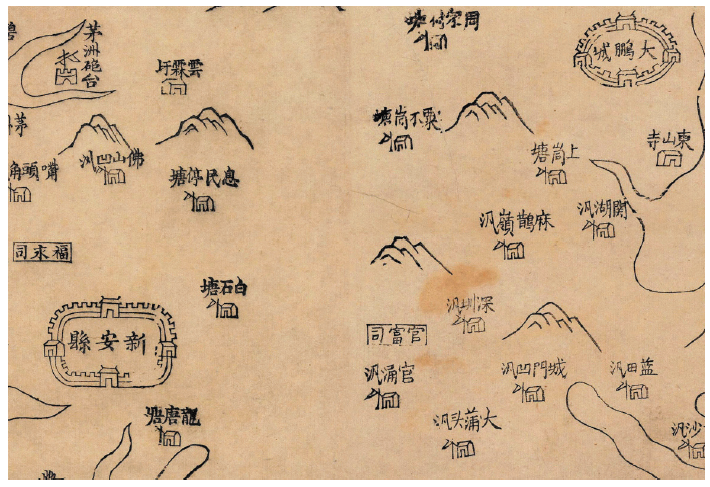 茅洲砲台
雲霖圩
周家村塘
大鵬城
粟不崗塘
上崗塘
東山寺
佛山凹汛
息民停塘
嘴頭角
麻鵲嶺汛
關湖汛
福永司
白石塘
深圳汛
新安縣
官富司
官涌汛
城門凹汛
藍田汛
龍唐塘
大蒲头汛
沙汛